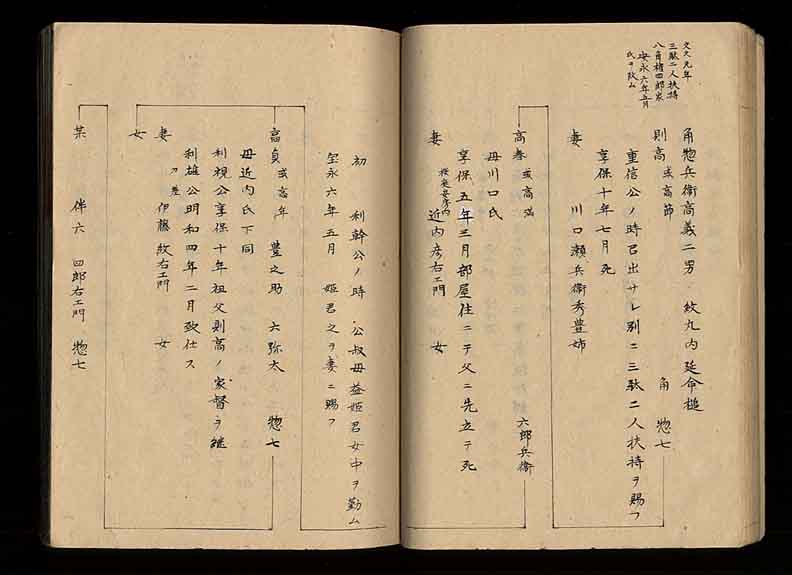 文久元年
三駄二人扶持
八角権四郎家
安永六年五月
氏ヲ改ム
角惣兵衛高義二男 紋丸内延命槌
則高 或高節 角 惣七
重信公ノ時召出サレ別ニ三駄二人扶持ヲ賜フ
享保十年七月死
妻 川口瀬兵衛秀豊姉
高春 或高満 六郎兵衛
母川口氏
享保五年三月部屋住ニテ父ニ先立テ死
妻 近内彦右エ門 女
初 利幹公ノ時 公叔母益姫君女中ヲ勤ム
宝永六年五月 姫君之ヲ妻ニ賜フ
高貞 或高年 豊之助 六弥太 惣七
母近内氏下同
利視公享保十年祖父則高ノ家督ヲ継
利雄公明和四年二月致仕ス
妻 伊藤紋右エ門 女
女
某 伴六 四郎右エ門 惣七